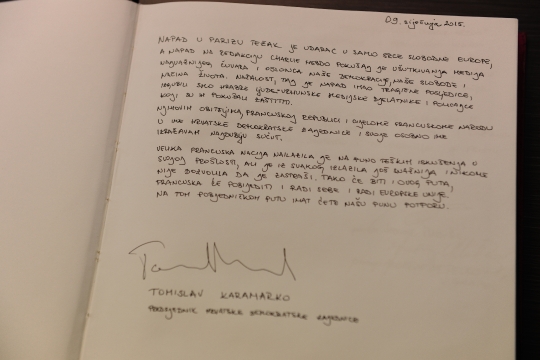 09. siječnja 2015.
NAPAD U PARIZU TEŽAK JE UDARAC U SAMO SRCE SLOBODNE EUROPE,
A NAPAD NA REDAKCIJU CHARLIE HEBDO POKUŠAJ JE UŠUTKIVANJA MEDIJA
NAJVAŽNIJEG ČUVARA I OSLONCA NAŠE DEMOKRACIJE, NAŠE SLOBODE I
NAČINA ŽIVOTA. NAŽALOST, TAJ JE NAPAD IMAO TRAGIČNE POSLJEDICE,
IZGUBILI SMO HRABRE LJUDE - VRHUNSKE MEDIJSKE DJELATNIKE I POLICAJCE
KOJI SU IH POKUŠALI ZAŠTITITI.
NJIHOVIM OBITELJIMA, FRANCUSKOJ REPUBLICI I CIJELOME FRANCUSKOME NARODU
U IME HRVATSKE DEMOKRATSKE ZAJEDNICE I SVOJE OSOBNO IME
IZRAŽAVAM NAJDUBLJU SUĆUT.
VELIKA FRANCUSKA NACIJA NAILAZILA JE NA PUNO TEŠKIH ISKUŠENJA U
SVOJOJ PROŠLOSTI, ALI JE IZ SVAKOG IZLAZILA JOŠ SNAŽNIJA I NIKOME
NIJE DOZVOLILA DA JE ZASTRAŠI. TAKO ĆE BITI I OVOG PUTA,
FRANCUSKA ĆE POBIJEDITI I RADI SEBE I RADI EUROPSKE UNIJE.
NA TOM POBJEDNIČKOM PUTU IMAT ĆETE NAŠU PUNU POTPORU.
TOMISLAV KARAMARKO
PREDSJEDNIK HRVATSKE DEMOKRATSKE ZAJEDNICE